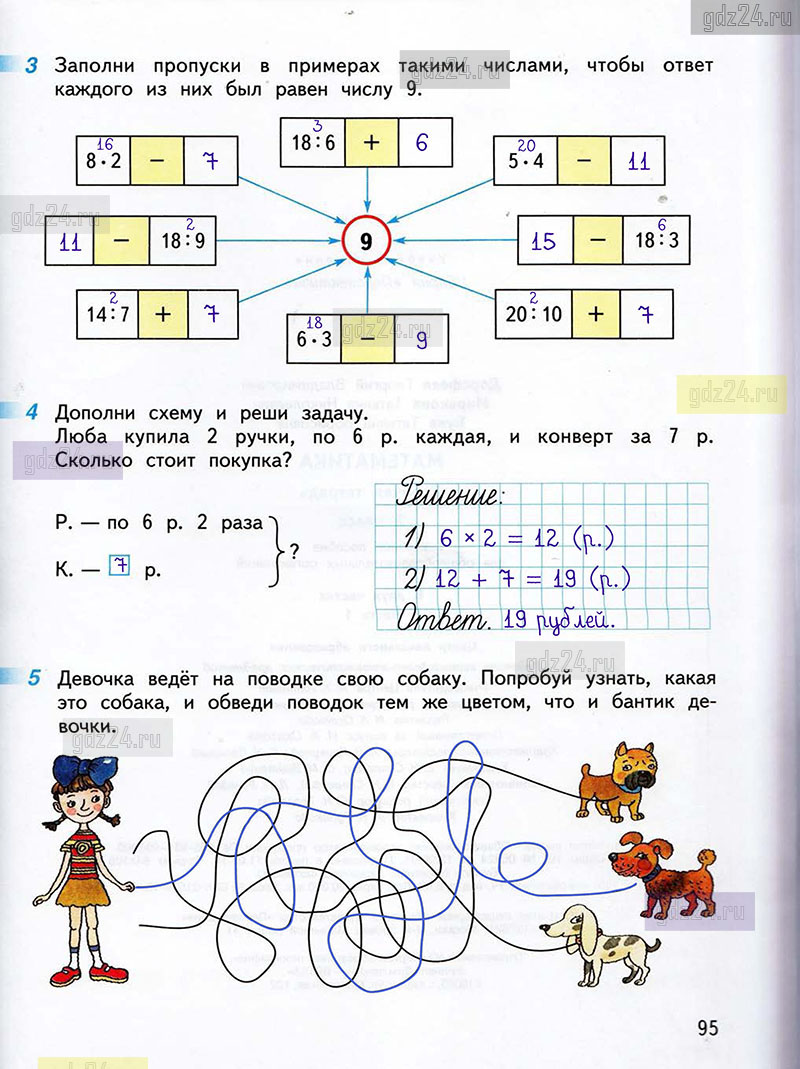 gdz24.ru
3 Заполни пропуски в примерах такими числами, чтобы ответ
каждого из них был равен числу 9.
gdz24.ru
16 3 20
8·2 − 7 18:6 + 6 5·4 − 11
gdz24.ru
2 6
11 − 18:9 9 15 − 18:3
2 18 2
14:7 + 7 6·3 − 9 20:10 + 7
gdz24.ru
gdz24.ru
4 Дополни схему и реши задачу.
Люба купила 2 ручки, по 6 р. каждая, и конверт за 7 р.
Сколько стоит покупка?
gdz24.ru
Решение:
Р. — по 6 р. 2 раза
?
К. — 7 р.
1) 6 × 2 = 12 (р.)
2) 12 + 7 = 19 (р.)
Ответ. 19 рублей.
gdz24.ru
5 Девочка ведёт на поводке свою собаку. Попробуй узнать, какая
это собака, и обведи поводок тем же цветом, что и бантик де-
вочки.
gdz24.ru
gdz24.ru
95